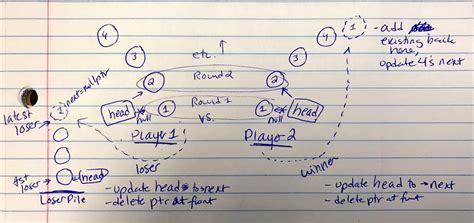 4
etc.
1
- add
existing back
here,
update 4's next
3
3
2
Round 2
2
Round 1
latest
loser
next=nullptr
head
null
1
vs.
1
null
head
Player 1
Player 2
loser
winner
1st
loser
head
Loser Pile
- update head → next
- delete ptr at font
- update head to → next
- delete ptr at font